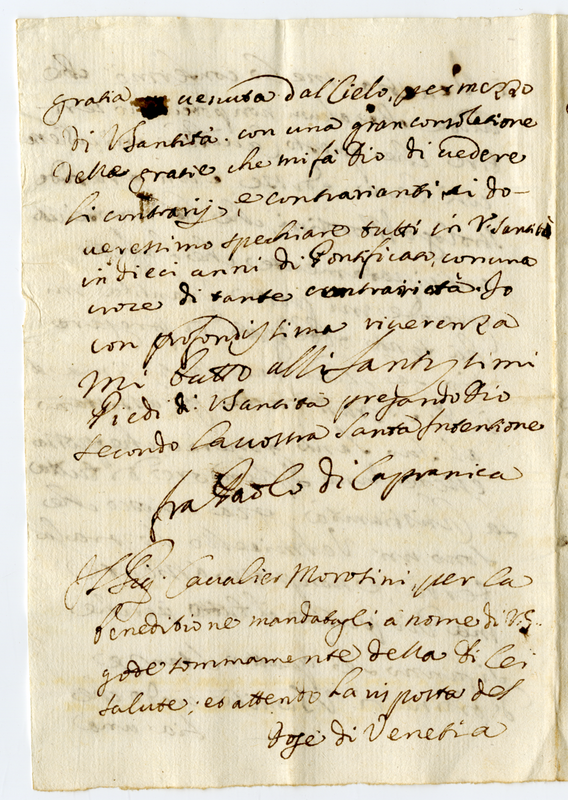 gratia venuta dal Cielo, per mezzo
di V Santità con una gran consolatione
delle gratie, che mi fà Dio di vedere
li contrarij, e contrarianti, si do-
veressimo spechiare tutti in V. Santità
in dieci anni di Pontificato, con una
croce di tante contrarietà. Io
con profondissima riverenza
mi butto alli Santissimi
Piedi di V Santità pregando Dio
secondo la vostra Santa Intentione
fra Paolo di Capranica
Il Sig. Cavalier Morosini, per la
beneditione mandatagli à nome di V. S.
gode sommamente della di lei
salute; et attendo la risposta del
Doge di Venetia